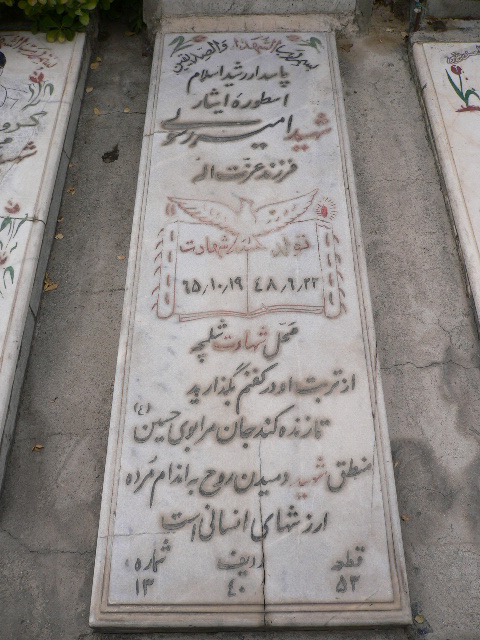 بسم رب الشهداء والصدیقین
پاسدار رشید اسلام
اسطوره ایثار
شهید امیر رسولی
فرزند عزت اله
تولد شهادت
۴۸٫۶٫۲۲ ۶۵٫۱۰٫۱۹
محل شهادت شلمچه
از تربت او در کفنم بگذارید
تا زنده کند جان مرا بوی حسین (ع)
منطق شهید دمیدن روح به اندام مرده
ارزشهای انسانی است
قطعه ردیف شماره
۵۳ ۴۰ ۱۳